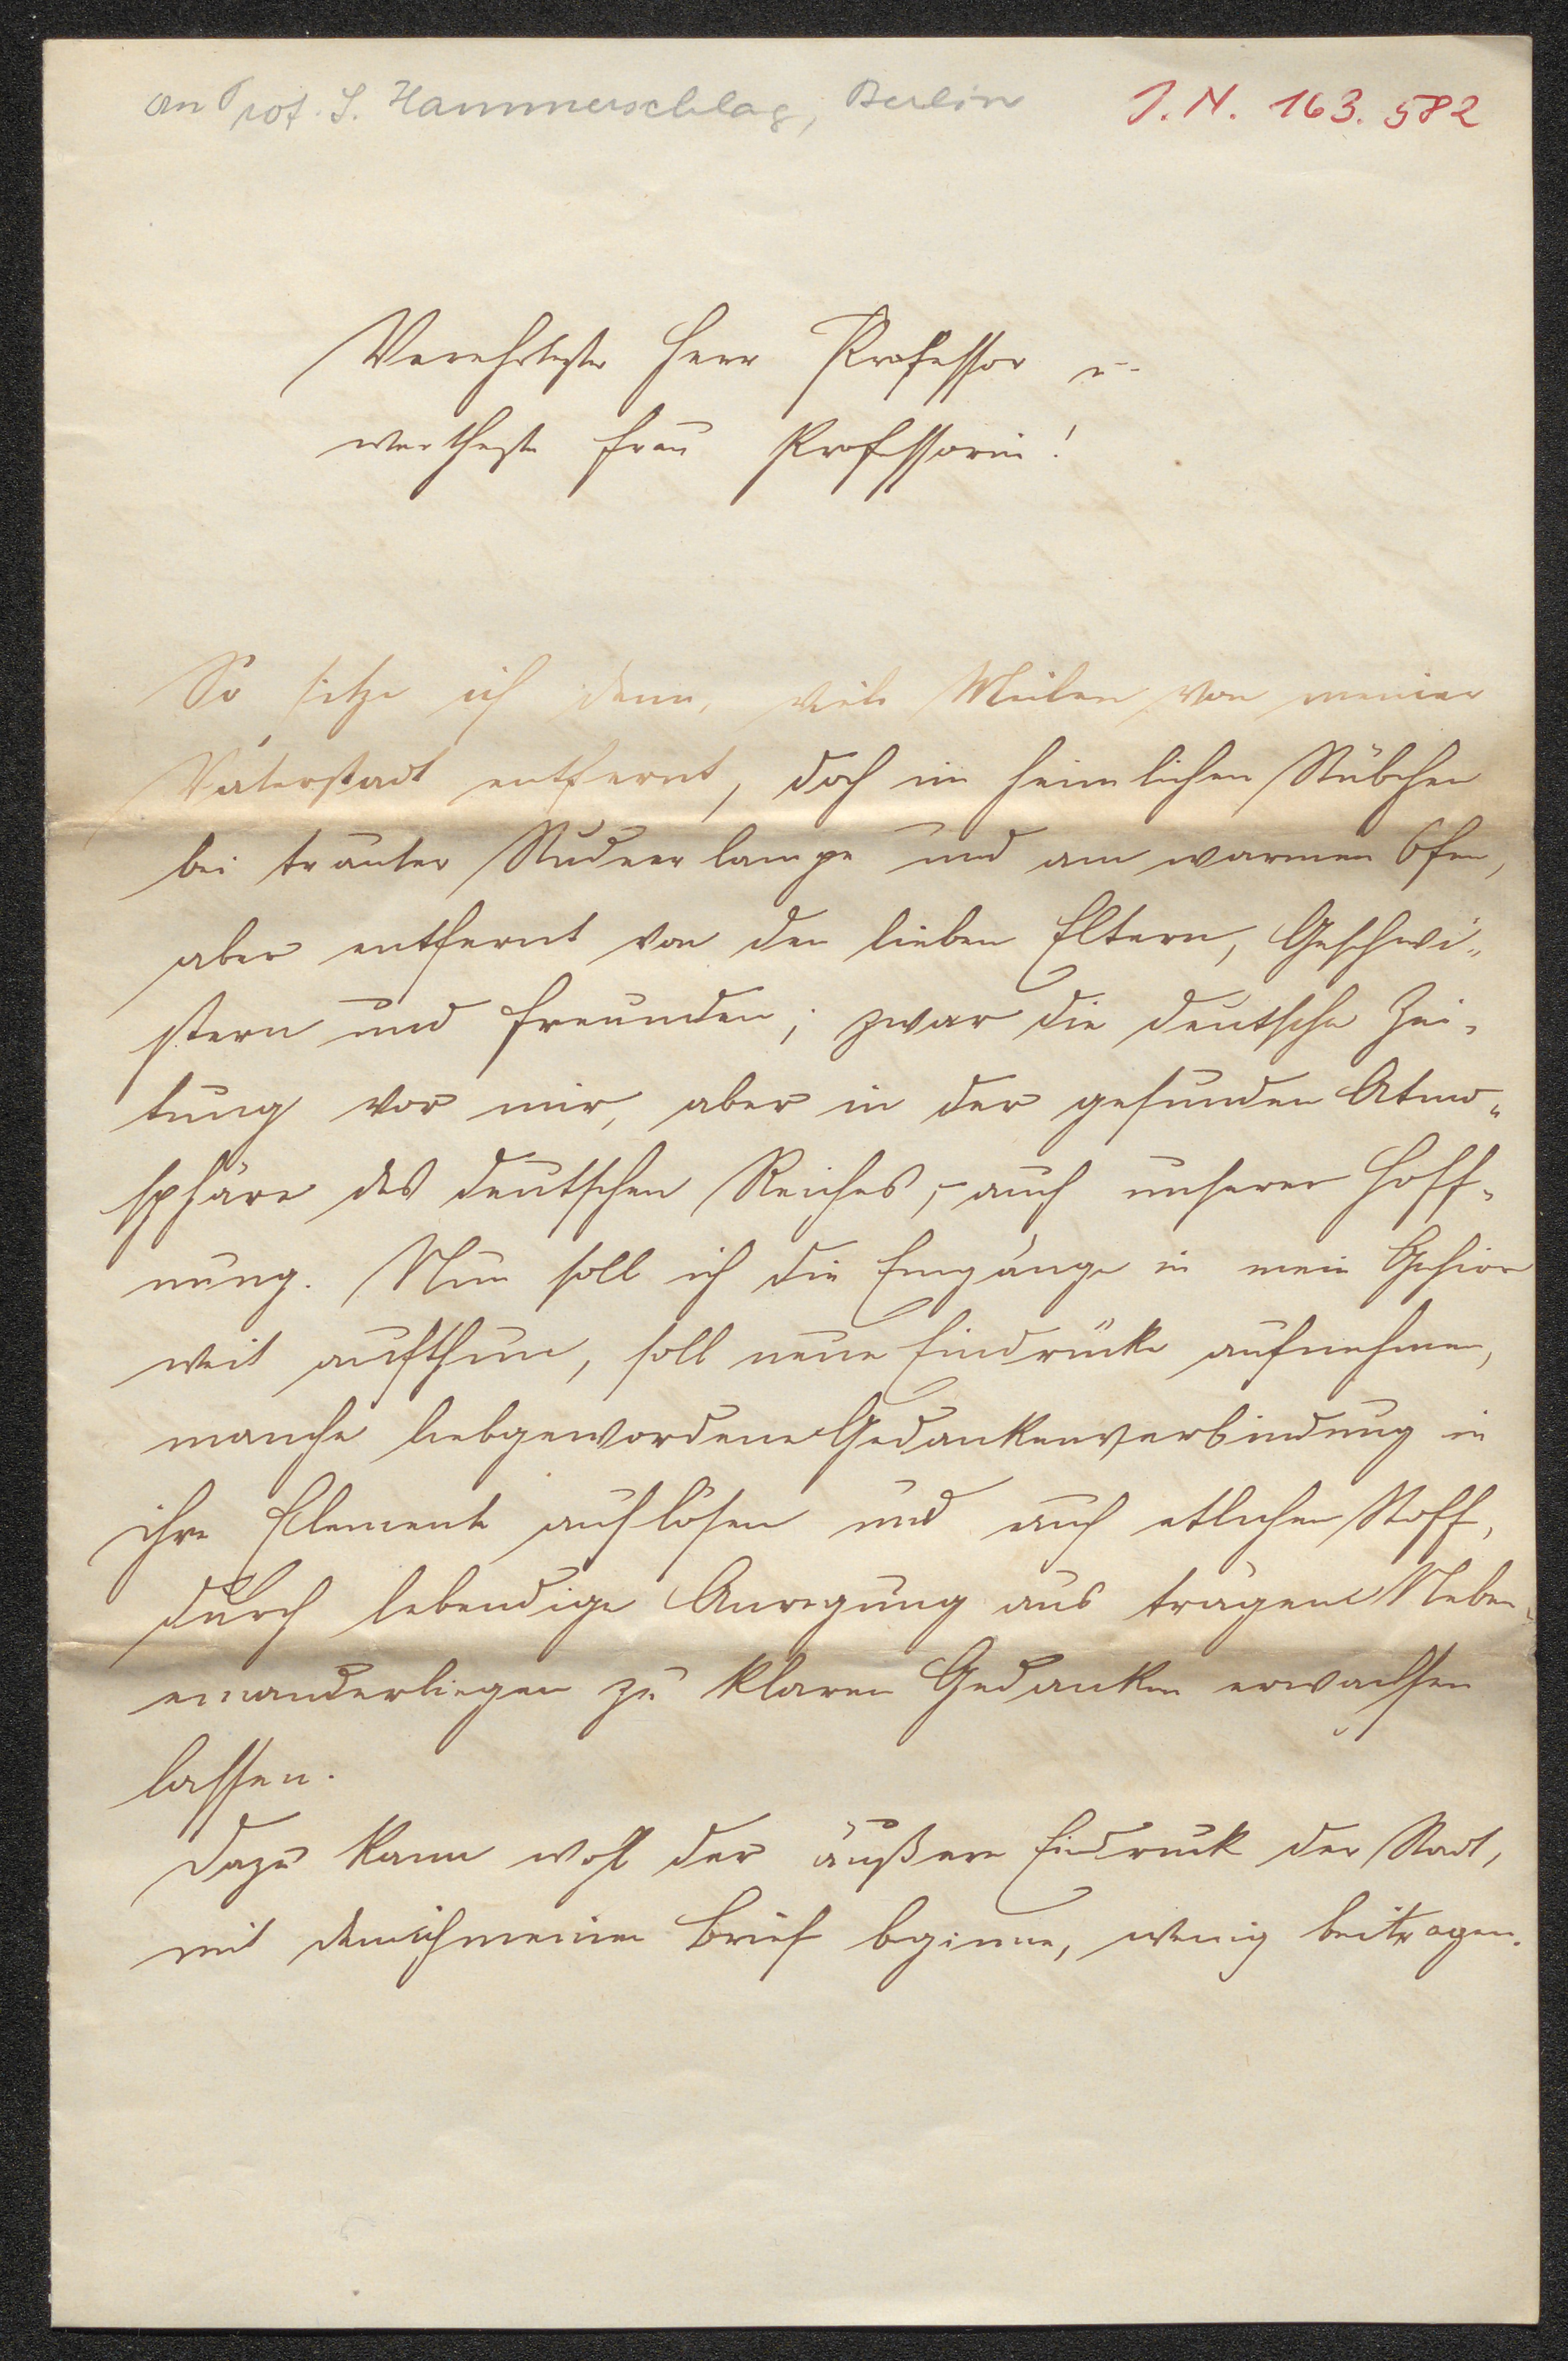 an Prof. S. Hammerschlag, Berlin J. N. 163. 582
Verehrtester Herr Professor u.
wertheste Frau Professorin!
So sitze ich denn, viele Meilen von meiner
Vaterstadt entfernt, doch im heimlichen Stübchen
bei trauter Studierlampe und am warmen Ofen,
aber entfernt von den lieben Eltern, Geschwi„
stern und Freunden; zwar die deutsche Zei„
tung vor mir, aber in der gesunden Atmo„
sphäre des deutschen Reiches, – auch unserer Hoff„
nung. Nun soll ich die Eingänge in mein Gehirn
weit aufthun, soll neue Eindrücke aufnehmen,
manche liebgewordene Gedankenverbindung in
ihre Elemente auflösen und auch etlichen Stoff,
durch lebendige Anregung aus trägem Neben„
einanderliegen zu klaren Gedanken erwachsen
lassen.
Dazu kann wohl der äußere Eindruck der Stadt,
mit dem ich meinen Brief beginne, wenig beitragen.